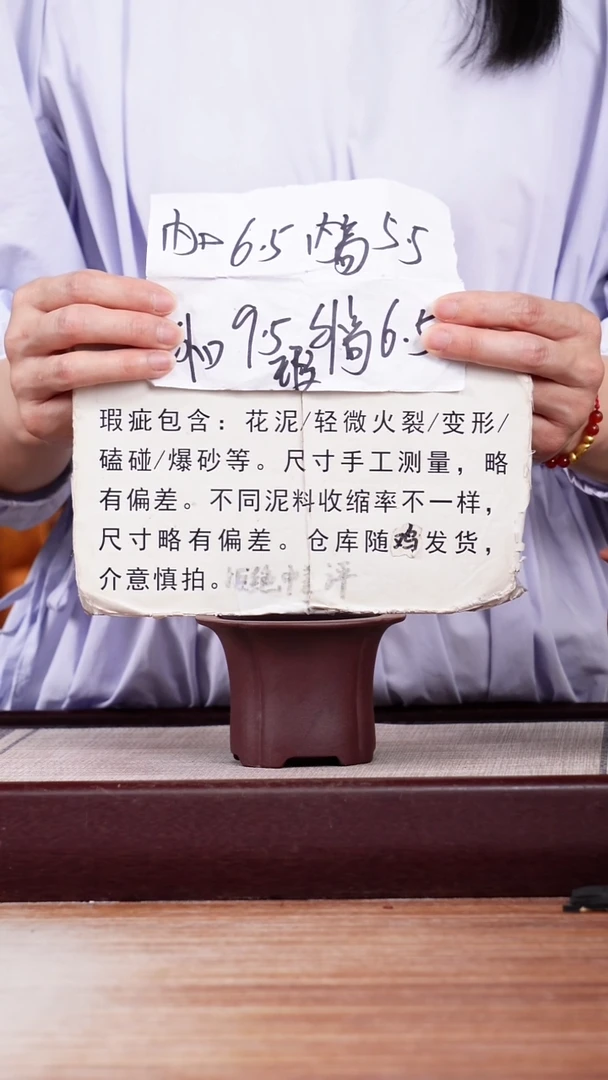 内口6.5 内高5.5
口9.5 外高6.5
瑕
瑕疵包含：花泥/轻微火裂/变形/
磕碰/爆砂等。尺寸手工测量，略
有偏差。不同泥料收缩率不一样，
尺寸略有偏差。仓库随鸡发货，
介意慎拍。